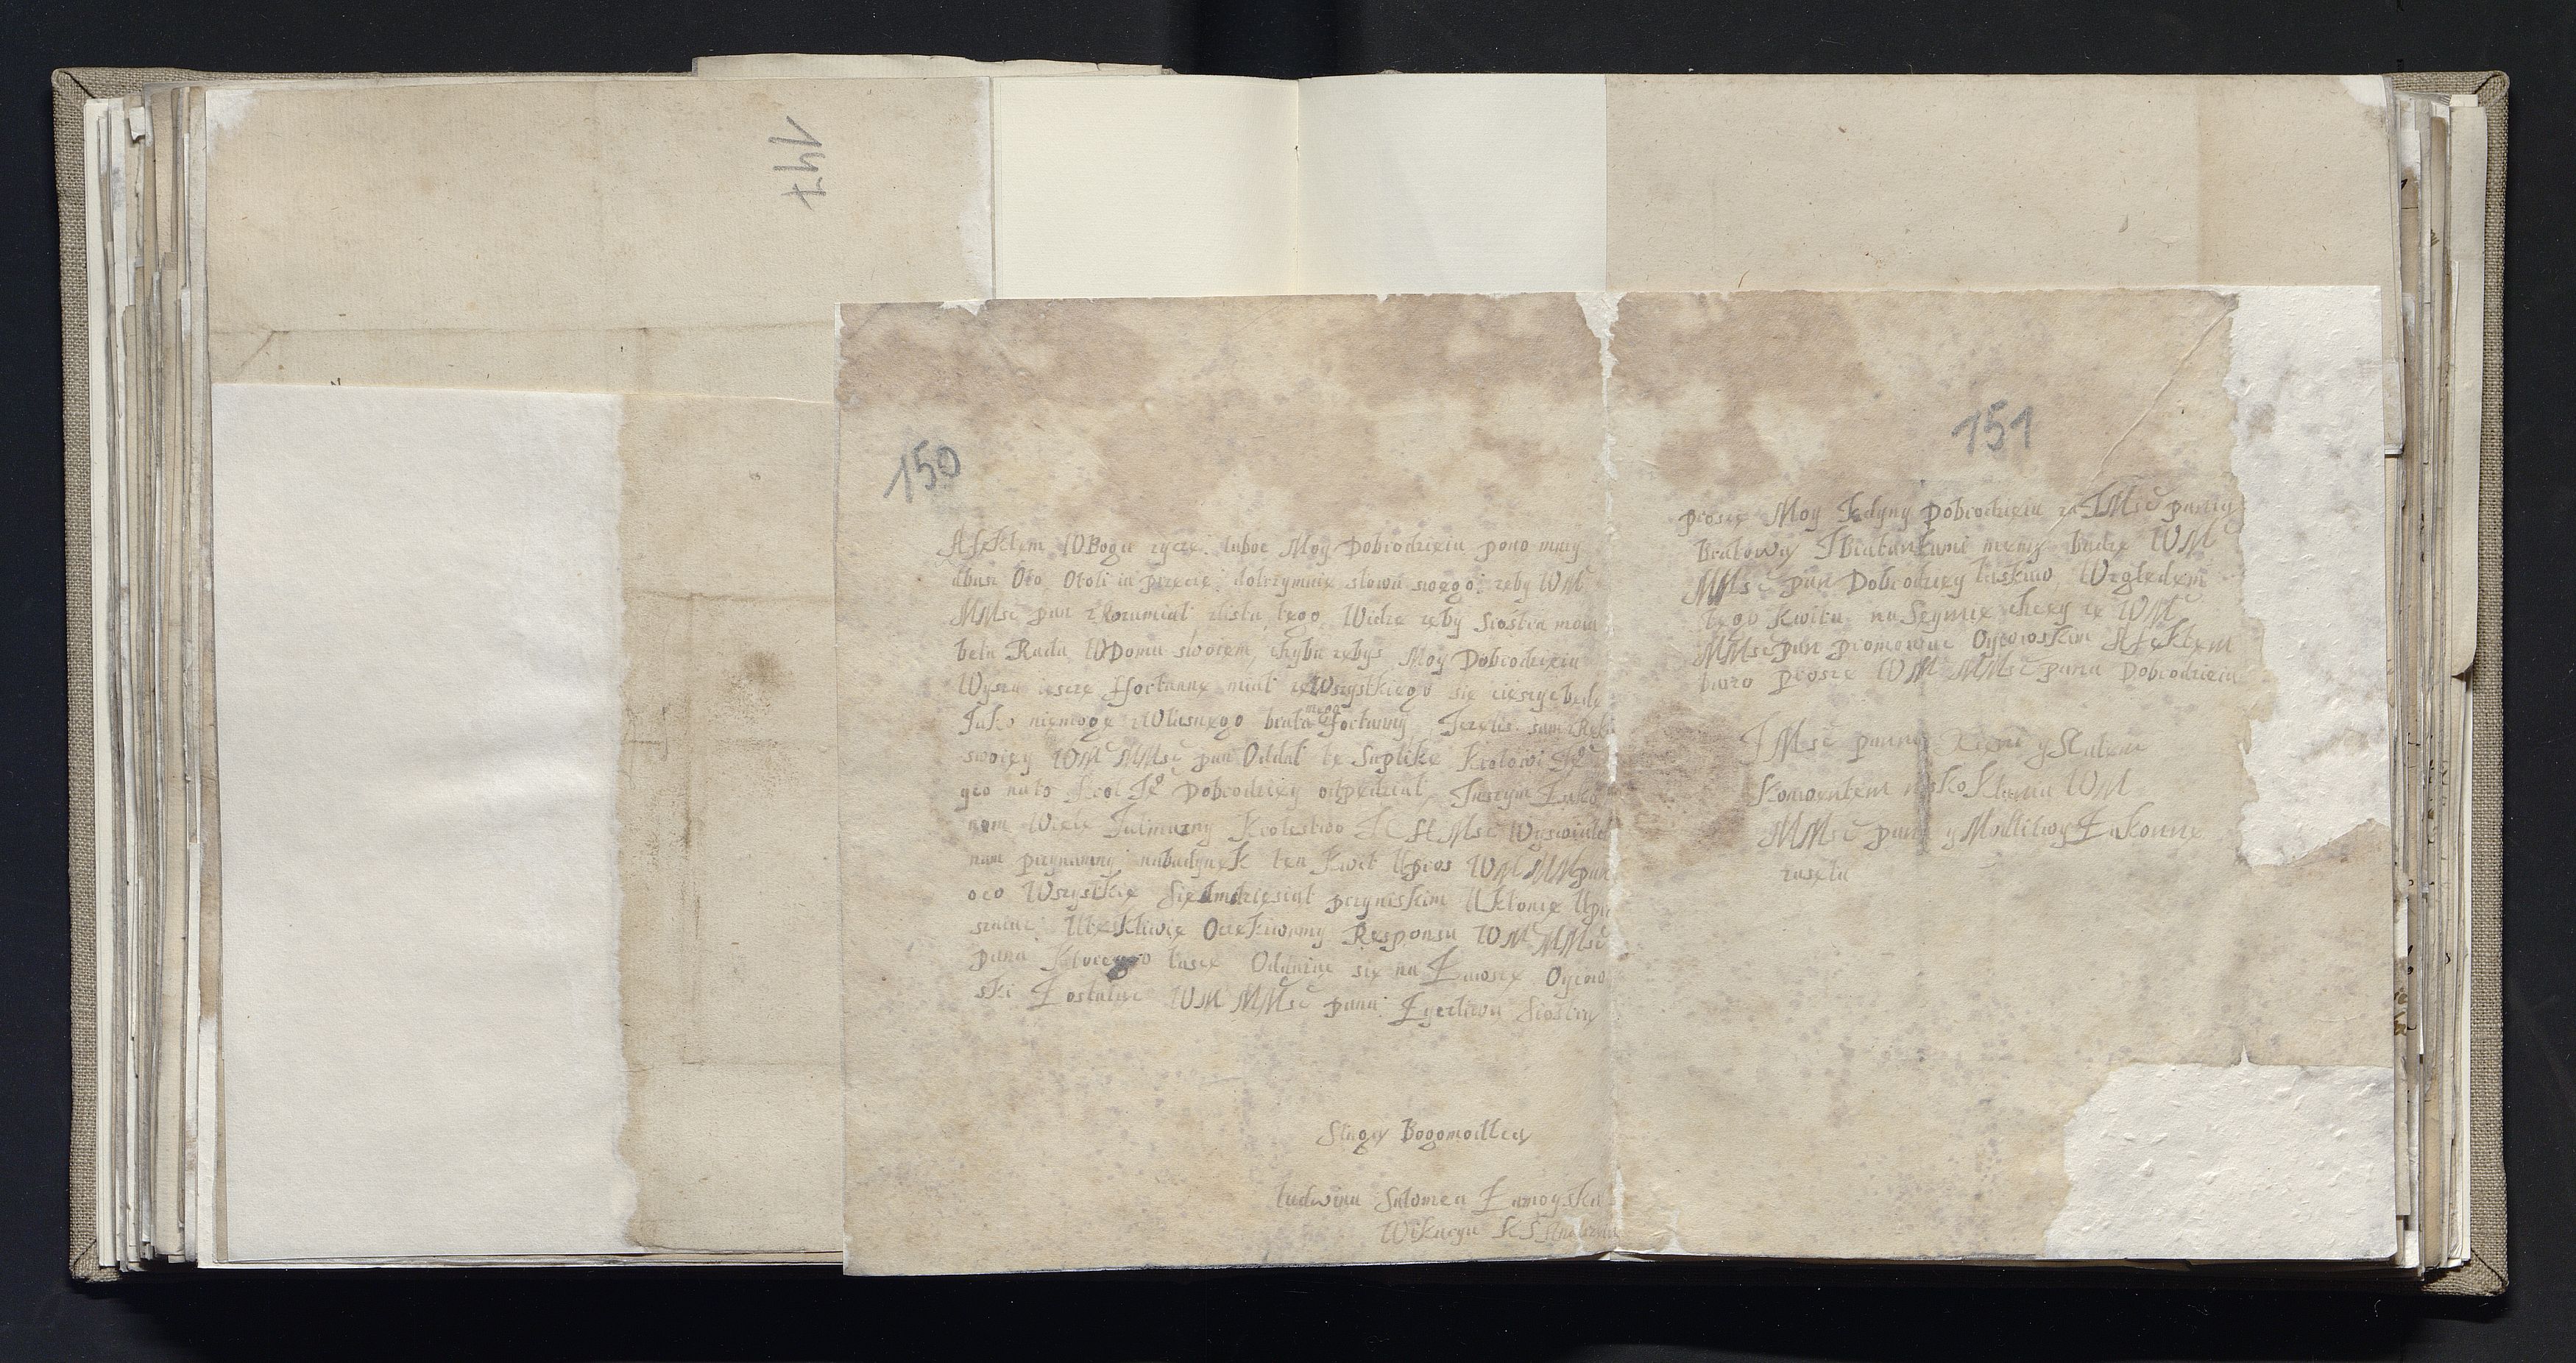 147
150
Afektem WBogu zyczę: luboc Moy Dobrodzieiu pono mniey
dbasz Oto Otoli ia przecie: dotrzymuie słowa swego: zeby WM
MMsc pan zRozumiał zlistu tego Widze zeby Siostra moia
beła Rada WDomu swoiem, chyba zebys Moy Dobrodzieiu
Wysza iescze ffortunne miał zeWszystkiego się cieszyc będę
Jako niemoge zWlasnego brata mego fortunny, Jezelis sam zRęki
swoiey WM MMsc pan Oddał te Suplike Krolowi Je
geo na to Krol Je Dobrodziey odpedział,
nam Wiele Jalmuzny Krolestwo
nam przynamniy nabudynek ten Kwit Upros WM MMpan
oco Wszystkie Siedmdziesiat przyniskim Ukłonie
Responsu WM MMsc
pana Ktorego łasce Oddaiac się na Zawsze Oycow
ski Zostaiac WM MMsc pana: Zyczliwa Siostra
Slugą Bogomodlcą
ludwina Salomea Zamoyska
Wikarya
151
prosze Moy Jedyny Dobrodzieiu za JMsc panny
Bratowy Jbratankami memy badz WM
MMsc pan Dobrodziey łaskaw Wzgledem
tego Kwitu na Seymie chciey ze WM
MMsc pan promowac Oycowskim Afektem
barzo prosze WM MMsc pana Dobrodzieia
JMsc panny Xieni yScałem
Konwentem nisko Kłania WM
MMsc panu y Modlitwy Zakonne
zaseła